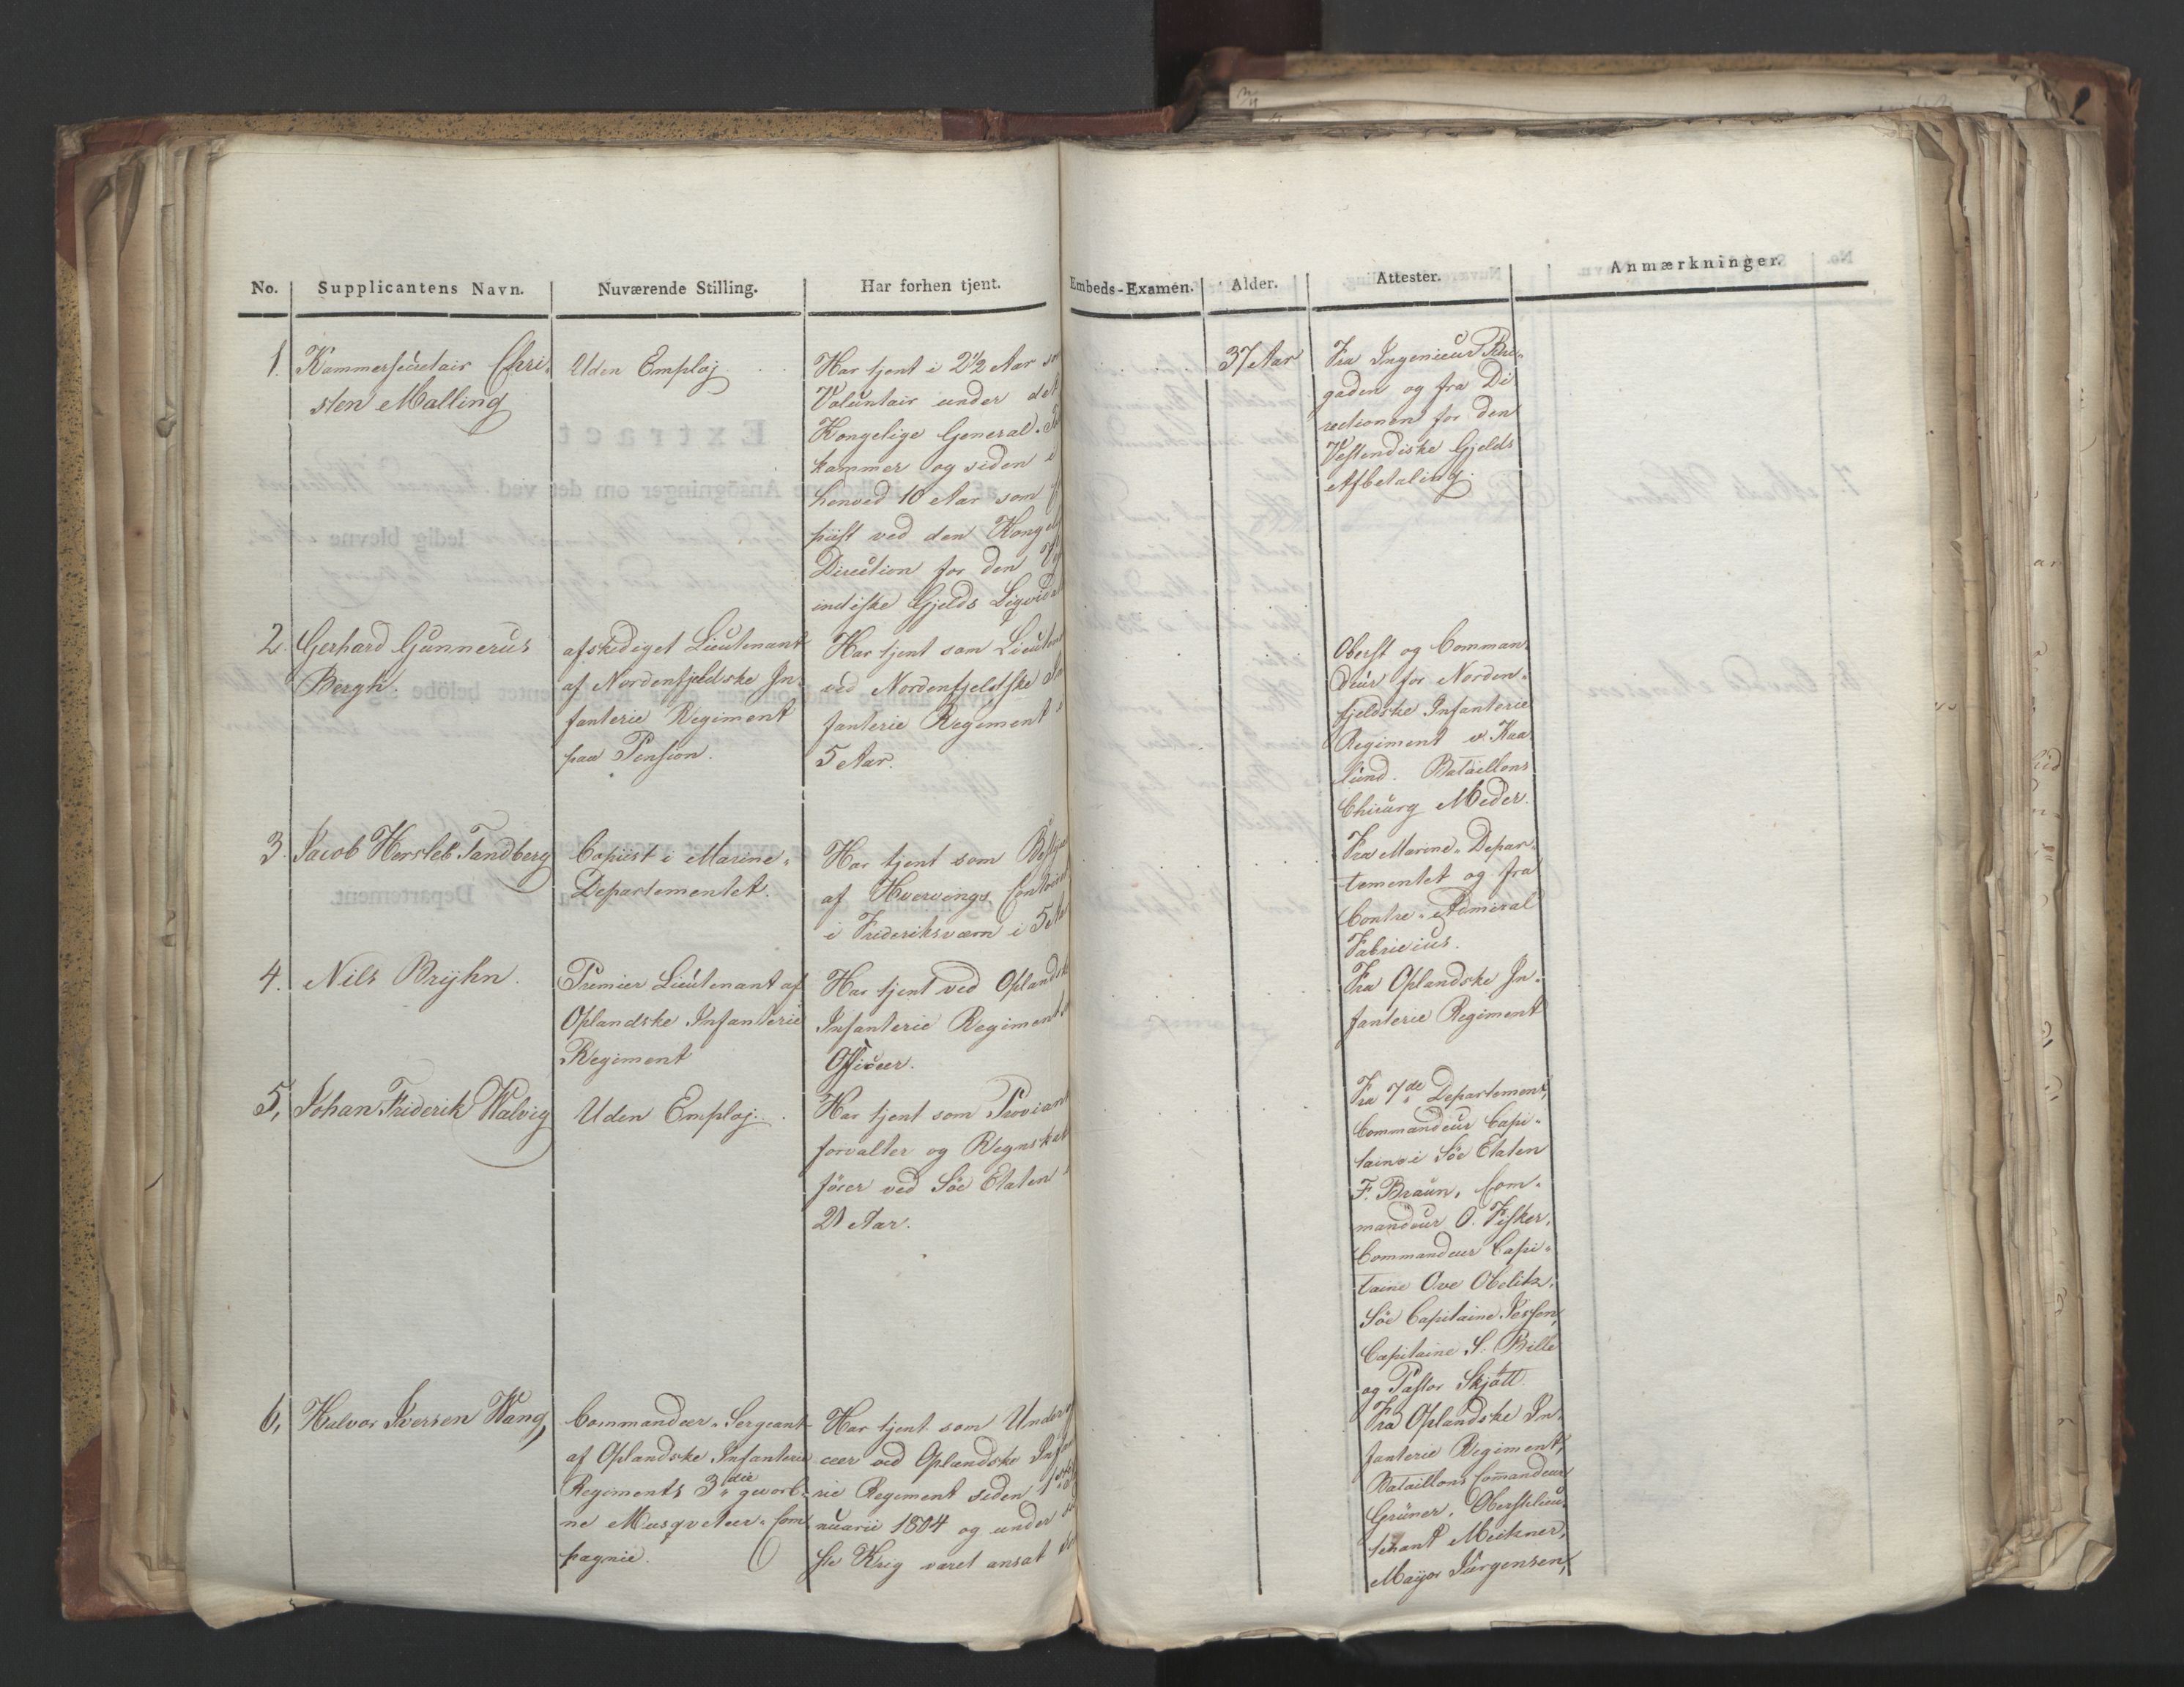 No. Supplicantens Navn. Nuværende Stilling. Har forhen tjent. Embeds-Examen. Alder. Attester. Anmærkninger.
1. Kammersecretair Chri-
sten Malling
Uden Employ
Har tjent i 2½ Aar
Voluntair under det
Kongelige General-
kammer og siden i
henved 10 Aar som
piist ved den
Direction for den
indiske Gjelds
37 Aar
Fra Ingenieur Bri-
gaden og fra Di
rectionen for den
Vestendiske Gjelds
Afbetaling.
2. Gerhard Gunnerus
Bergh.
afskediget Lieutenant
af Nordenfjeldske In-
fanterie Regiment
paa Pension.
Har tjent som
ved Nordenfjeldske
fanterie Regiment
5 Aar.
Oberst og Comman-
deur for Norden-
fjeldske Infanterie
Regiment v. Kaa
lund. Bataillons
Chirurg Meder.
3. Jacob Hersleb Tandberg
Copiist i Marine-
Departementet.
Har tjent som
af Hvervings
i Frideriksværn i 5
Fra Marine-Depar-
tementet og fra
Contre-Admiral
Fabricius.
4. Nils Brÿhn.
Premier Lieutenant af
Oplandske Infanterie
Regiment
Har tjent ved
Infanterie Regiment
Officeer.
Fra Oplandske In-
fanterie Regiment
5, Johan Friderik Walvig
Uden Employ.
Har tjent som Proviant
forvalter og
fører ved Söe Etaten
21 Aar.
Fra 7de Departement,
Commandeur Capi-
taine i Söe Etaten
F. Braun, Com-
mandeur O. Fisker,
Commandeur Capi-
taine Ove
Söe Capitaine
Capitaine S. Bille
og Pastor Skjött.
6, Halvor Iversen Wang,
Commandeer-Sergeant
af Oplandske Infanterie
Regiments 3die gevorb-
ne Musqveteer-Com
pagnie.
Har tjent som
ceer ved Oplandske
rie Regiment siden 1ste
nuarii 1804 og under
ste Krig været ansat
Fra Oplandske In-
fanterie Regiment,
Bataillons Commandeur
Grüner, Oberstlieu-
tenant Meitzner,
Mayor Jürgensen,